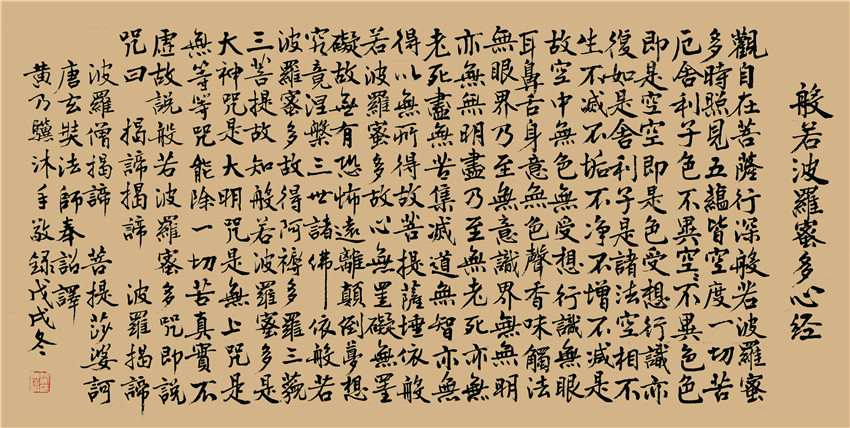 般若波羅蜜多心经
觀自在菩薩行深般若波羅蜜
多時照見五蘊皆空度一切苦
厄舍利子色不異空空不異色色
即是空空即是色受想行識亦
復如是舍利子是諸法空相不
生不减不垢不净不增不减是
故空中無色無受想行識無眼
耳鼻舌身意無色聲香味觸法
無眼界乃至無意識界無無明
亦無無明盡乃至無老死亦無
老死盡無苦集滅道無智亦無
得以無所得故菩提薩埵依般
若波羅蜜多故心無罣礙無罣
礙故無有恐怖遠離顛倒夢想
究竟涅槃三世諸佛依般若
波羅蜜多故得阿褥多羅三藐
三菩提故知般若波羅蜜多是
大神咒是大明咒是無上咒是
無等等咒能除一切苦真實不
虛故說般若波羅蜜多咒即說
咒曰 揭諦揭諦 波羅揭諦
波羅僧揭諦 菩提莎婆訶
唐玄奘法師奉詔譯
黄乃驥沐手敬録戊戌冬